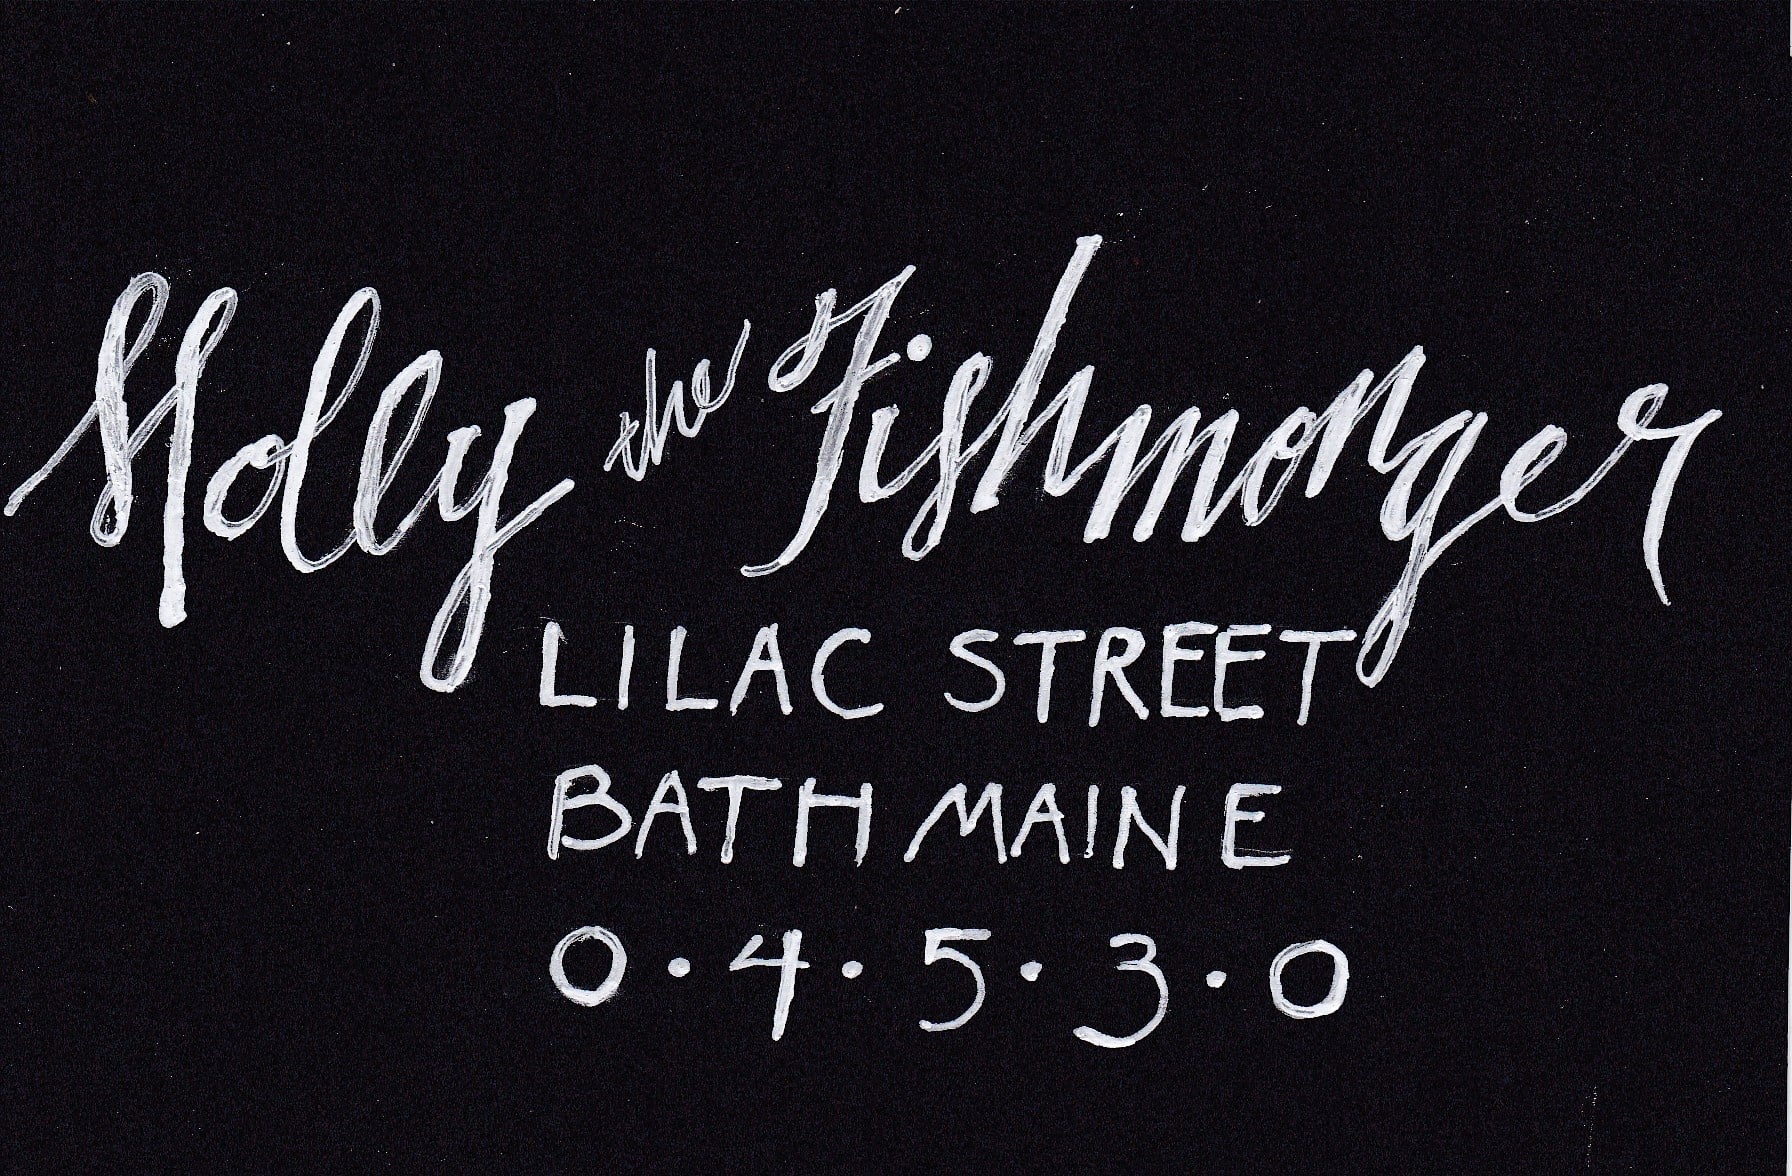 Holly the Fishmonger
LILAC STREET
BATH MAINE
0·4·5·3·0